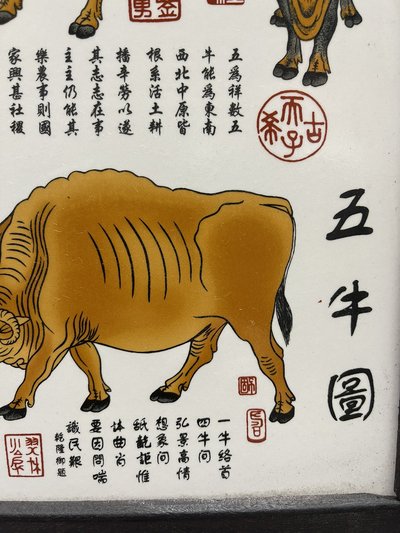 五為祥數五
牛能為東南
西北中原皆
根系活土耕
播辛勞以遂
其志志在事
主主仍能其
樂農事則國
家興甚社稷
古希天子
五牛圖
一牛絡首
四牛間
弘景高情
想象間
詎惟
曲肖
要因問喘
識民艱
乾隆御題